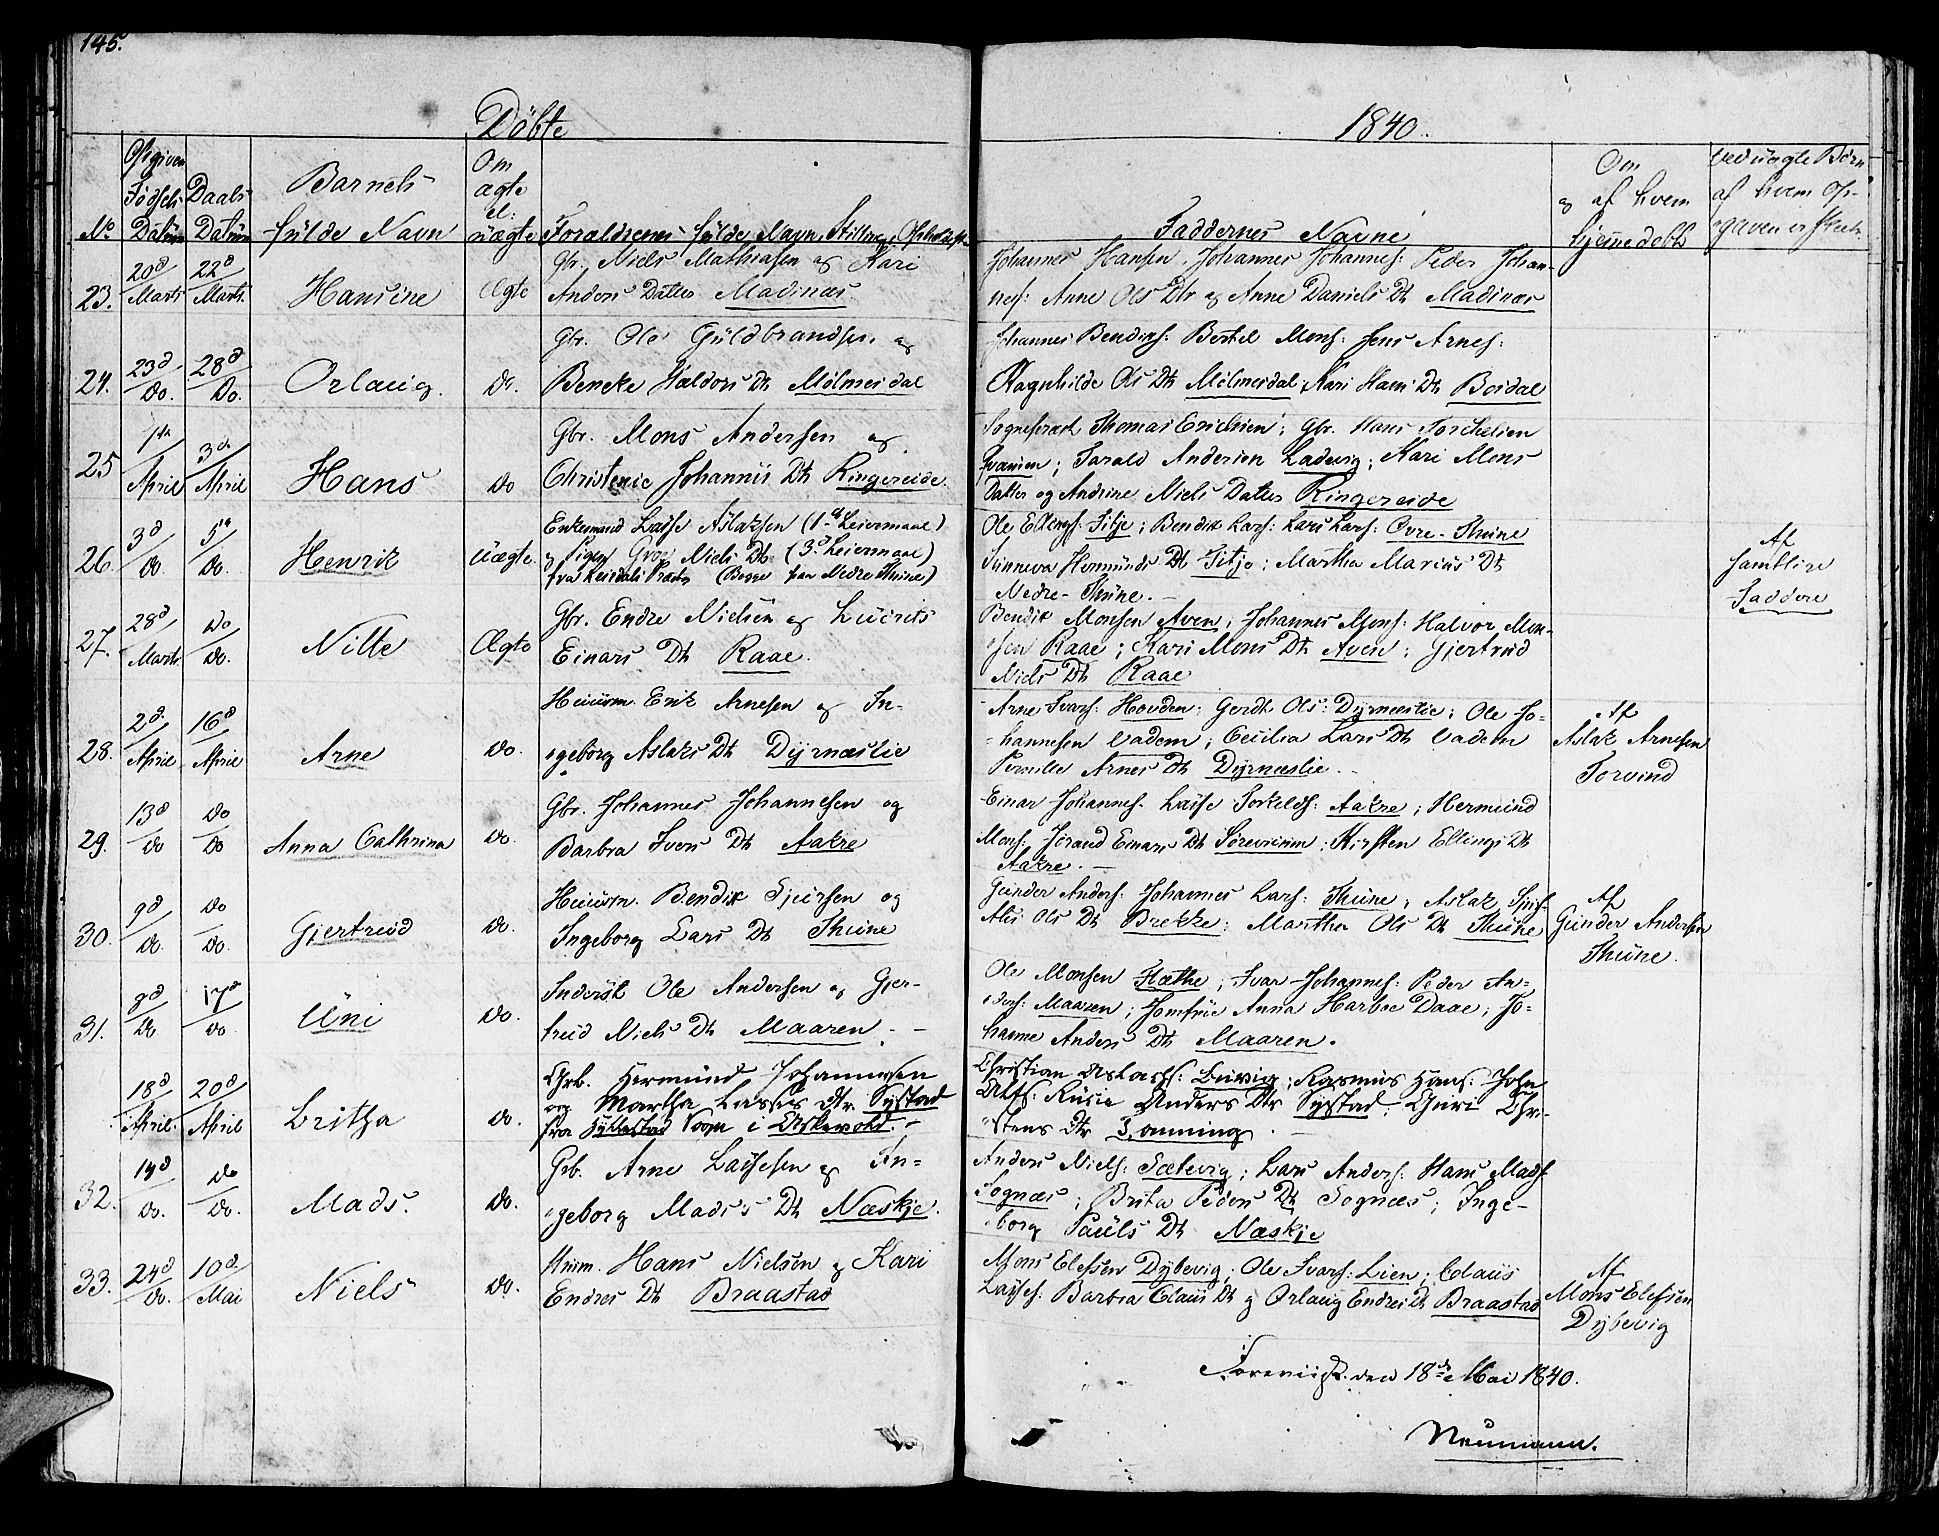 145.
Döbte
1840.
No
Opgiven Födsels Datum
Daabs Datum
Barnets fulde Navn
Om ægte el: uægte
Forældrenes fulde Navn, Stilling,
Faddernes Navne
Om og af hvem hjemmedöbt
ved uægte Börn af hvem Opgaven er skeet.
23. 20d/Marts 22d/Marts Hansine Ægte
Gbr. Niels Mathiasen og Kari
Anders Datter Madinæs
Johannes Hansen, Johannes Johannes: Peder Johan-
nes: Anne Ols Dtr og Anne Daniels Dt Madinæs
24. 23d/Do. 28d/Do. Orlaug. Do.
Gbr. Ole Guldbrandsen og
Beneke Haldors Dt Mölmesdal
Johannes Bendixs: Bertel Mons: Jens Arnes:
Ragnhilde Ols Dt Mölmesdal; Kari Hans Dt Bordal
25 1ste/April 3de/April Hans Do
Gbr. Mons Andersen og
Christense Johannis Dt Ringereide.
Sogneprest Thomas Erichsen; Gbr. Hans Torchelsen
Qvamen; Tarald Andersen Ladvig; Kari Mons
Datter og Andrine Niels Datter Ringereide
26. 3d/Do. 5te/Do. Henrik Uægte.
Enkemand Lasse Aslaksen (1ste Leiermaal)
og Pigen Groe Niels Dt (3d Leiermaal)
(Begge paa Nedre Thune)
Ole Ellings: Titje; Bendix Lars: Lars Lars: Övre-Thune
Sünneva Hermunds Dt Titje; Martha Marius Dt
Nedre-Thune.
Af
samtlige
Faddere
27. 28d/Marts. Do/Do. Nille Ægte
Gbr. Endre Nielsen og Lucrets
Einars Dt Raae.
Bendix Monsen Aven; Johannes Mons: Halvor Mon-
sen Raae; Kari Mons Dt Aven; Gjertrud
Niels Dt Raae
28. 2d/April 16d/April Arne Do.
Huusm. Erik Arnesen og In-
geborg Aslaks Dt Dyrnæslie
Arne Ivars: Hovden; Gerdt Ols: Dyrnæslie; Ole Jo-
hannesen Vadem; Cecilia Lars Dt Vadem
Pernille Arnes Dt Dyrnæslie.
Af
Aslak Arnesen
Torvind
29. 13d/Do Do/Do Anna Cathrina Do.
Gbr. Johannes Johannesen og
Barbra Ivers Dt Aakre
Einar Johannes: Lasse Torkelds: Aakre; Hermund
Mons: Jorand Einars Dt Kirsten Ellings Dt
Aakre.
30. 9d/Do. Do/Do. Gjertrud Do.
Huusm. Bendix Sjursen og
Ingeborg Lars Dt Thune
Gunder Anders: Johannes Lars: Thune; Aslak Sjurs-
Alis Ols Dt Brekke; Martha Ols Dt Thune
Af
Gunder Andersen
Thune.
31. 9d/Do 17d/Do. Uni Do.
Inderst Ole Andersen og Gjer-
trud Niels Dt Maaren.
Ole Monsen Flæthe; Ivar Johannes: Peder An-
ders: Maaren; Jomfrue Anna Harboe Daae; Jo-
hanne Anders Dt Maaren.
18d/April. 20d/April Britha Do.
Grb. Hermund Johannesen
og Martha Lasses Dtr Systad
fra Gyllestad Sogn i Askevold.
Christian Aslaks: Buvig; Rasmus Hans: John
Alfs: Rusie Anders Dtr Systad; Guri Chri-
stens Dtr
32. 14d/Do. Do/Do. Mads. Do.
Grb. Arne Lassesen og In-
geborg Mads's Dt Næskje.
Anders Niels: Sætevig; Lars Anders: Hans Mads:
Sognæs; Brita Peders Dt Sognæs; Inge-
borg Pauls Dt Næskje
33. 24d/Do. 10d/Mai Niels Do.
Huusm. Hans Nielsen og Kari
Endres Dt Braastad
Mons Elefsen Dybevig; Ole Ivars: Lien; Claus
Lasses: Barbra Claus Dt og Orlaug Endres Dt Braastad
Af
Mons Elefsen
Dybevig
Foreviist den 18de Mai 1840.
Neumann.